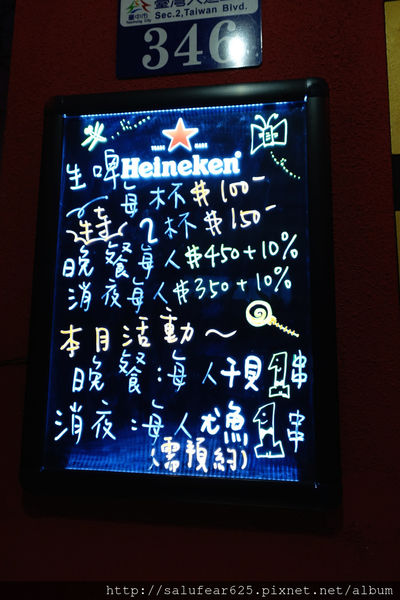 臺灣大道二段
臺中市
Taichung City
Sec.2,Taiwan Blvd.
346
TRADE MARK
Heineken®
生啤
每杯 $100-
特 2杯 $150-
晚餐每人$450+10%
消夜每人$350+10%
本月活動~
晚餐:每人干貝1串
消夜:每人尤魚1串
(需預約)
http://salufear625.pixnet.net/album